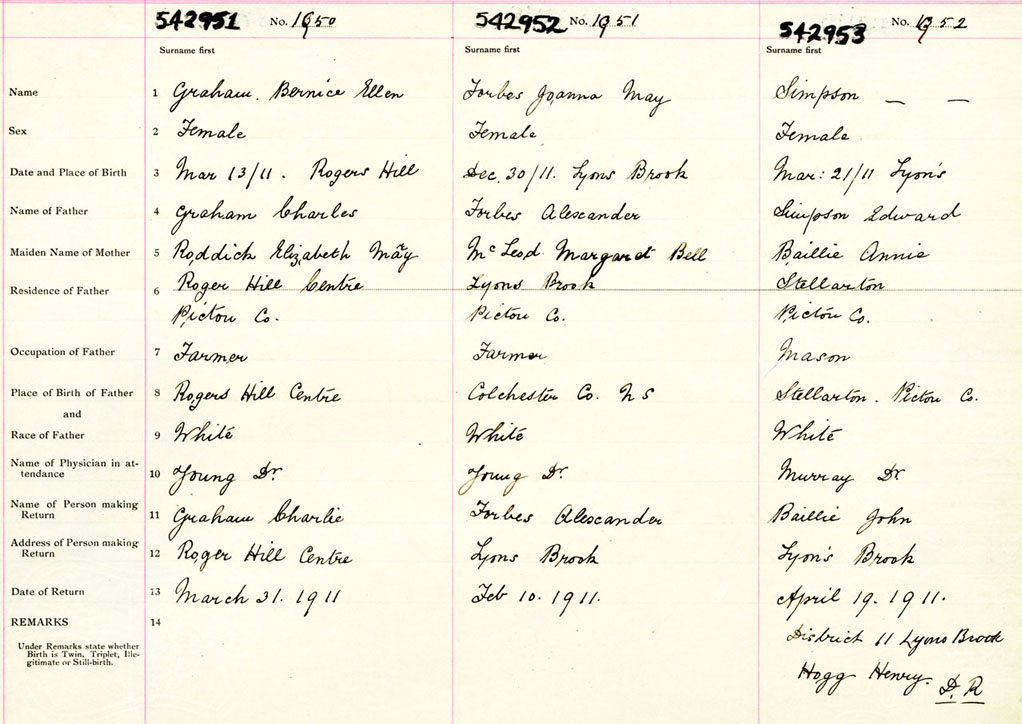 542951 No. 1950 542952 No. 1951 542953 No. 1952
Surname first Surname first Surname first
Name 1 Graham. Bernice Ellen Forbes Joanna May Simpson — —
Sex 2 Female Female Female
Date and Place of Birth 3 Mar 13/11. Rogers Hill Dec. 30/11. Lyons Brook Mar: 21/11 Lyon's
Name of Father 4 Graham Charles Forbes Alexander Simpson Edward
Maiden Name of Mother 5 Roddick Elizabeth Mary McLeod Margaret Bell Baillie Annie
Residence of Father 6 Roger Hill Centre Lyons Brook Stellarton
Pictou Co. Pictou Co. Pictou Co.
Occupation of Father 7 Farmer Farmer Mason
Place of Birth of Father 8 Rogers Hill Centre Colchester Co. NS Stellarton. Pictou Co.
and
Race of Father 9 White White White
Name of Physician in at-
tendance 10 Young Dr. Young Dr. Murray Dr
Name of Person making
Return 11 Graham Charlie Forbes Alexander Baillie John
Address of Person making
Return 12 Roger Hill Centre Lyons Brook Lyon's Brook
Date of Return 13 March 31. 1911 Feb 10. 1911. April 19. 1911.
REMARKS 14
District 11 Lyons Brook
Under Remarks state whether
Birth is Twin, Triplet, Ille-
gitimate or Still-birth.
Hogg Henry. D. R